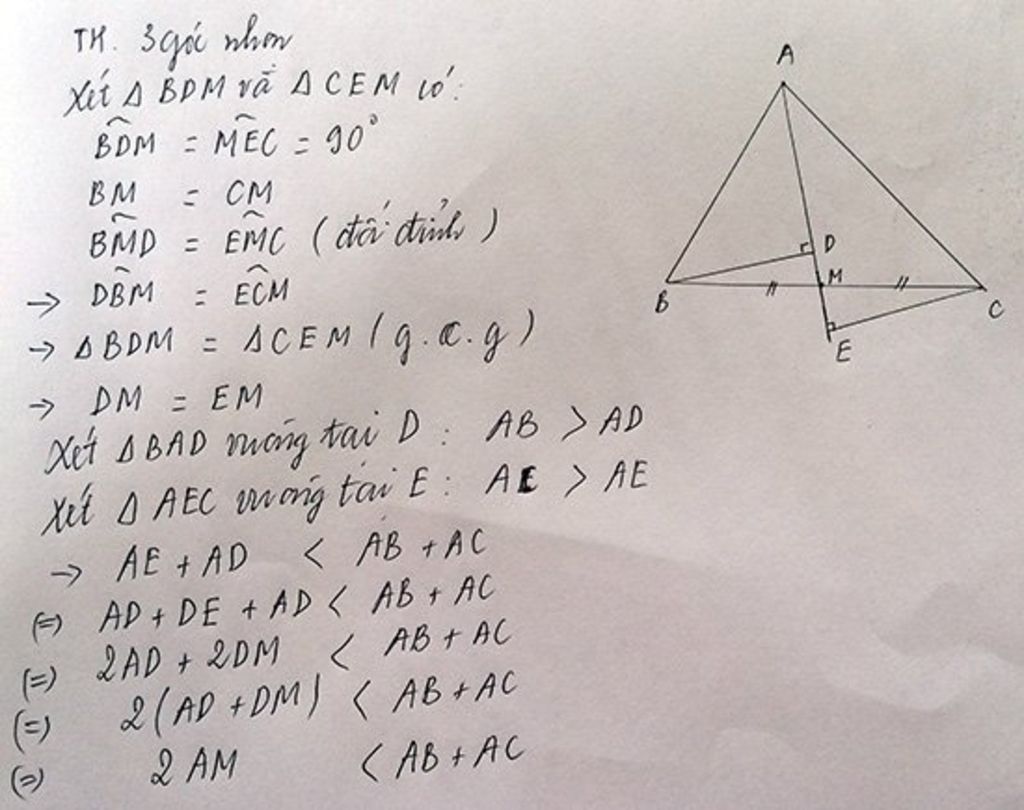 TH. 3 góc nhọn
Xét Δ BDM và Δ CEM có:
B̂DM = M̂EC = 90°
BM = CM
B̂MD = ÊMC (đối đỉnh)
→ D̂BM = ÊCM
→ Δ BDM = Δ CEM (g.c.g)
→ DM = EM
Xét Δ BAD vuông tại D: AB > AD
Xét Δ AEC vuông tại E: AC > AE
→ AE + AD < AB + AC
(=) AD + DE + AD < AB + AC
(=) 2AD + 2DM < AB + AC
(=) 2(AD + DM) < AB + AC
(=) 2AM < AB + AC
A
D
M
B
C
E